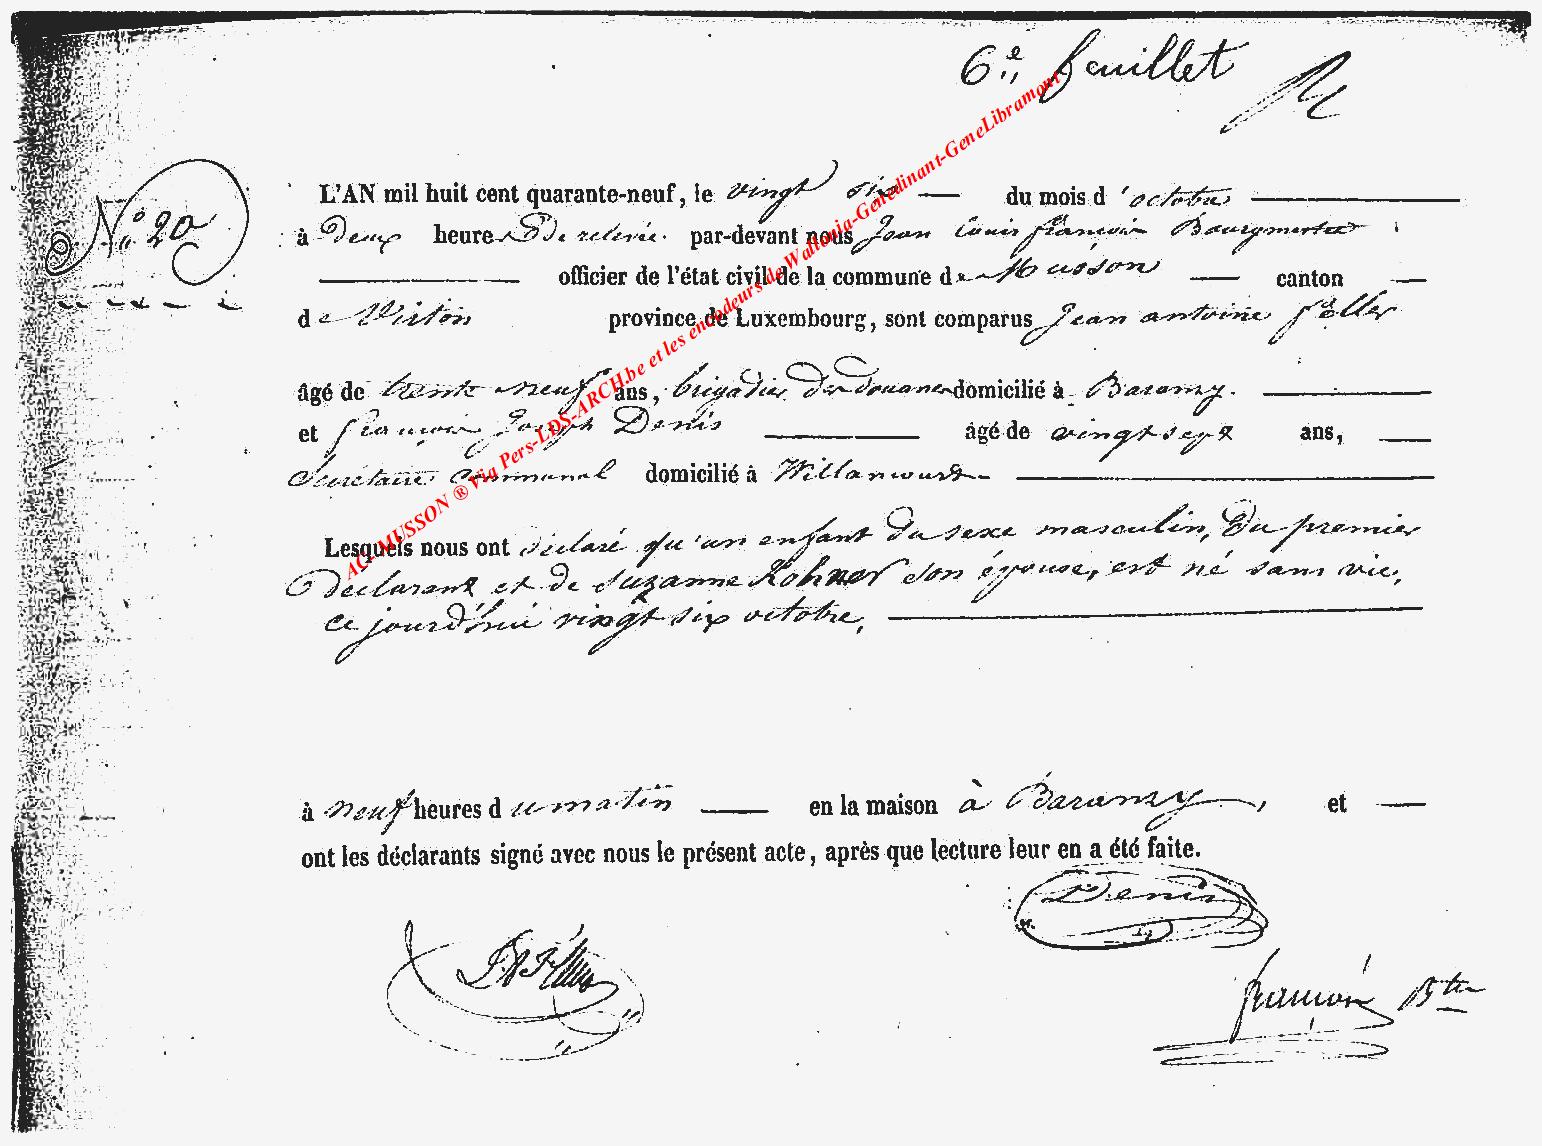 6e feuillet
N° 20
L'AN mil huit cent quarante-neuf, le vingt six du mois d'octobre
à Deux heures de relevée. par-devant nous Jean Louis françois Bourgmestre
officier de l'état civil de la commune de Musson canton
de Virton province de Luxembourg, sont comparus Jean antoine feller
âgé de trente neuf ans, brigadier des douanes domicilié à Baranzy.
et françois Joseph Denis âgé de vingt sept ans,
Secrétaire communal domicilié à Willancourt
Lesquels nous ont déclaré qu'un enfant du sexe masculin, du premier
Déclarant et de Suzanne Kohner son épouse, est né sans vie,
ce jourd'hui vingt six octobre,
à neuf heures du matin en la maison à Baranzy, et
ont les déclarants signé avec nous le présent acte, après que lecture leur en a été faite.
Denis
J. A Feller
françois Btre
AC-MUSSON ® Via Pers-LDS-ARCH.be et les encodeurs de Wallonia-Genedinant-GeneLibramont